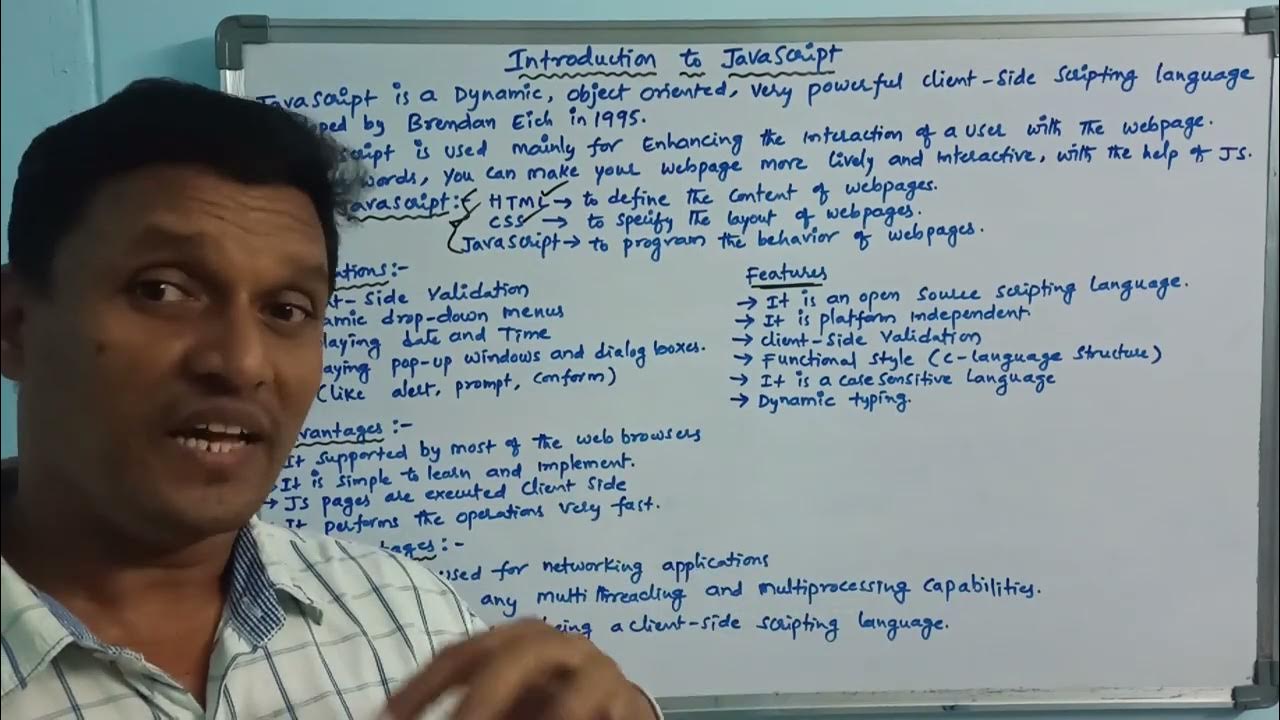 Introduction to JavaScript
JavaScript is a Dynamic, object oriented, very powerful client-side scripting language
ped by Brendan Eich in 1995.
ript is used mainly for Enhancing the interaction of a user with the webpage.
words, you can make your webpage more lively and interactive, with the help of JS.
avascript:- HTML → to define the content of webpages.
CSS → to specify the layout of webpages.
JavaScript → to program the behavior of webpages.
ations:-
t-side validation
amic drop-down menus
laying date and Time
aying pop-up windows and dialog boxes.
(like alert, prompt, conform)
vantages:-
It supported by most of the web browsers
It is simple to learn and implement.
→ JS pages are executed client side
It performs the operations very fast.
tages:-
used for networking applications
any multi threading and multiprocessing capabilities.
being a client-side scripting language.
Features
→ It is an open source scripting language.
→ It is platform independent
→ client-side validation
→ Functional style (C-language structure)
→ It is a case sensitive language
→ Dynamic typing.